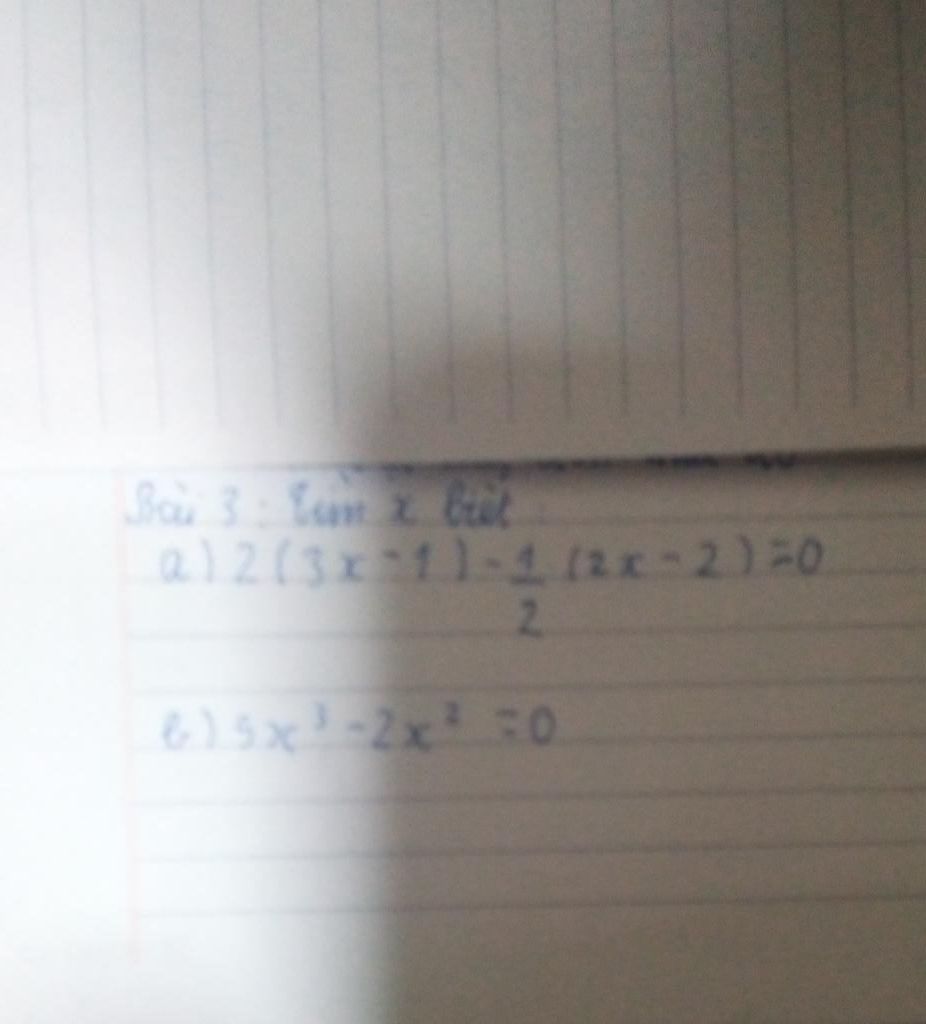 Bài 3: Tìm x biết
a) 2(3x - 1) - \frac{1}{2} (2x - 2) = 0
b) 5x³ - 2x² = 0